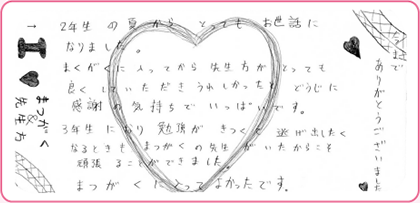 2年生の夏からとってもお世話に
なりました。
まくがくに入ってから先生方がとっても
良くしていただきうれしかったと どうじに
感謝の気持ちでいっぱいです。
3年生になり勉強がきつくて逃げ出したく
なるときもまつがくの先生がいたからこそ
頑張ることができました。
まつがくに入ってよかったです。
今まで
ありがとうございました
I
まつがく
先生方